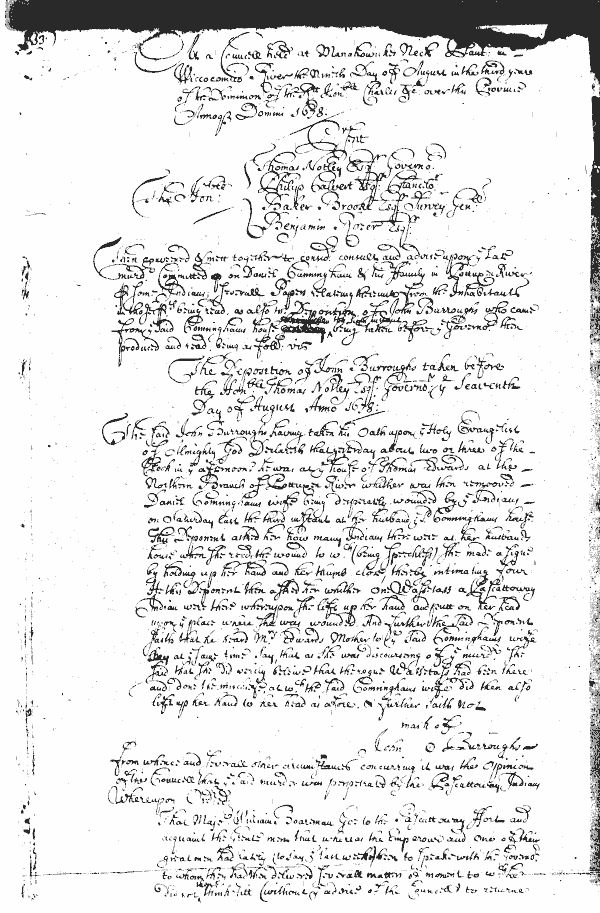 At a Councell held at Manahowickes Neck & Laut: in
Wiccocomico River the Nineth Day of August in the third yeare
of the Dominion of the Rt Honble Charles &c over this Province
Annoq Domini 1678:
Prsent
Thomas Notley Esqr Governor
The Honble Philip Calvert Esqr Chancelor
Baker Brooke Esqr Survey Genll
Benjamin Rozer Esqr
Then convened & mett together to consider consult and advise upon ye Late
murder Committed on Daniel Cunningham & his Family in Potuxen River
by some Indians; severall Papers relateing thereunto from the Inhabitants
in those pts being read, as also the Deposition of John Burroughs who came
from ye said Cunninghams house being taken before ye Governor then
produced and read being as follt. vizt
The Deposition of John Burroughs taken before
the Honble Thomas Notley Esqr Governor ye Seaventh
Day of August Anno 1678:
The said John Burroughs having taken his Oath upon ye Holy Evangelist
of Allmighty God Declareth that yesterday about two or three of the
Clock in ye afternoone he was at ye house of Thomas Edwards at the
Northern Branch of Potuxen River whither was then removed
Daniel Conninghams wife being desperately wounded by ye Indians
on Saturday last the third instant at her husband ye sd Conninghams house
This Deponent asked her how many Indians there were at her husbands
house when she recd the wound to wch (being speechless) she made a signe
by holding up her hand and her thumb close thereby intimating four
He this Deponent then asked her whether One Wassetass a Pascattoway
Indian were there whereupon she lift up her hand and putt on her head
upon ye place where she was wounded And further the said Deponent
saith that he heard Mrs Edwards Mother to ye said Conninghams wife
say at ye same time, that as she was discoursing of ye murder she
said that she did verily beleive that the rogue Wassetass had been there
and done the mischeife at wch the said Conninghams wife did then also
lift up her hand to her head as afore. & further saith not
mark of
John O Burroughs
From whence and severall other circumstances concurring it was the Opinion
of the Councell that ye said murder was perpetrated by the Pascattoway Indians
Whereupon Ordred
That Major William Boareman Goe to the Pascattoway Fort and
acquaint the Great men that whereas the Emperour and One of their
great men had lately (to say ye last weeke) been to speake with the Governor
to whom they had then delivered severall matters of moment to wch he
did not think fitt (without ye advice of the Councell) to returne